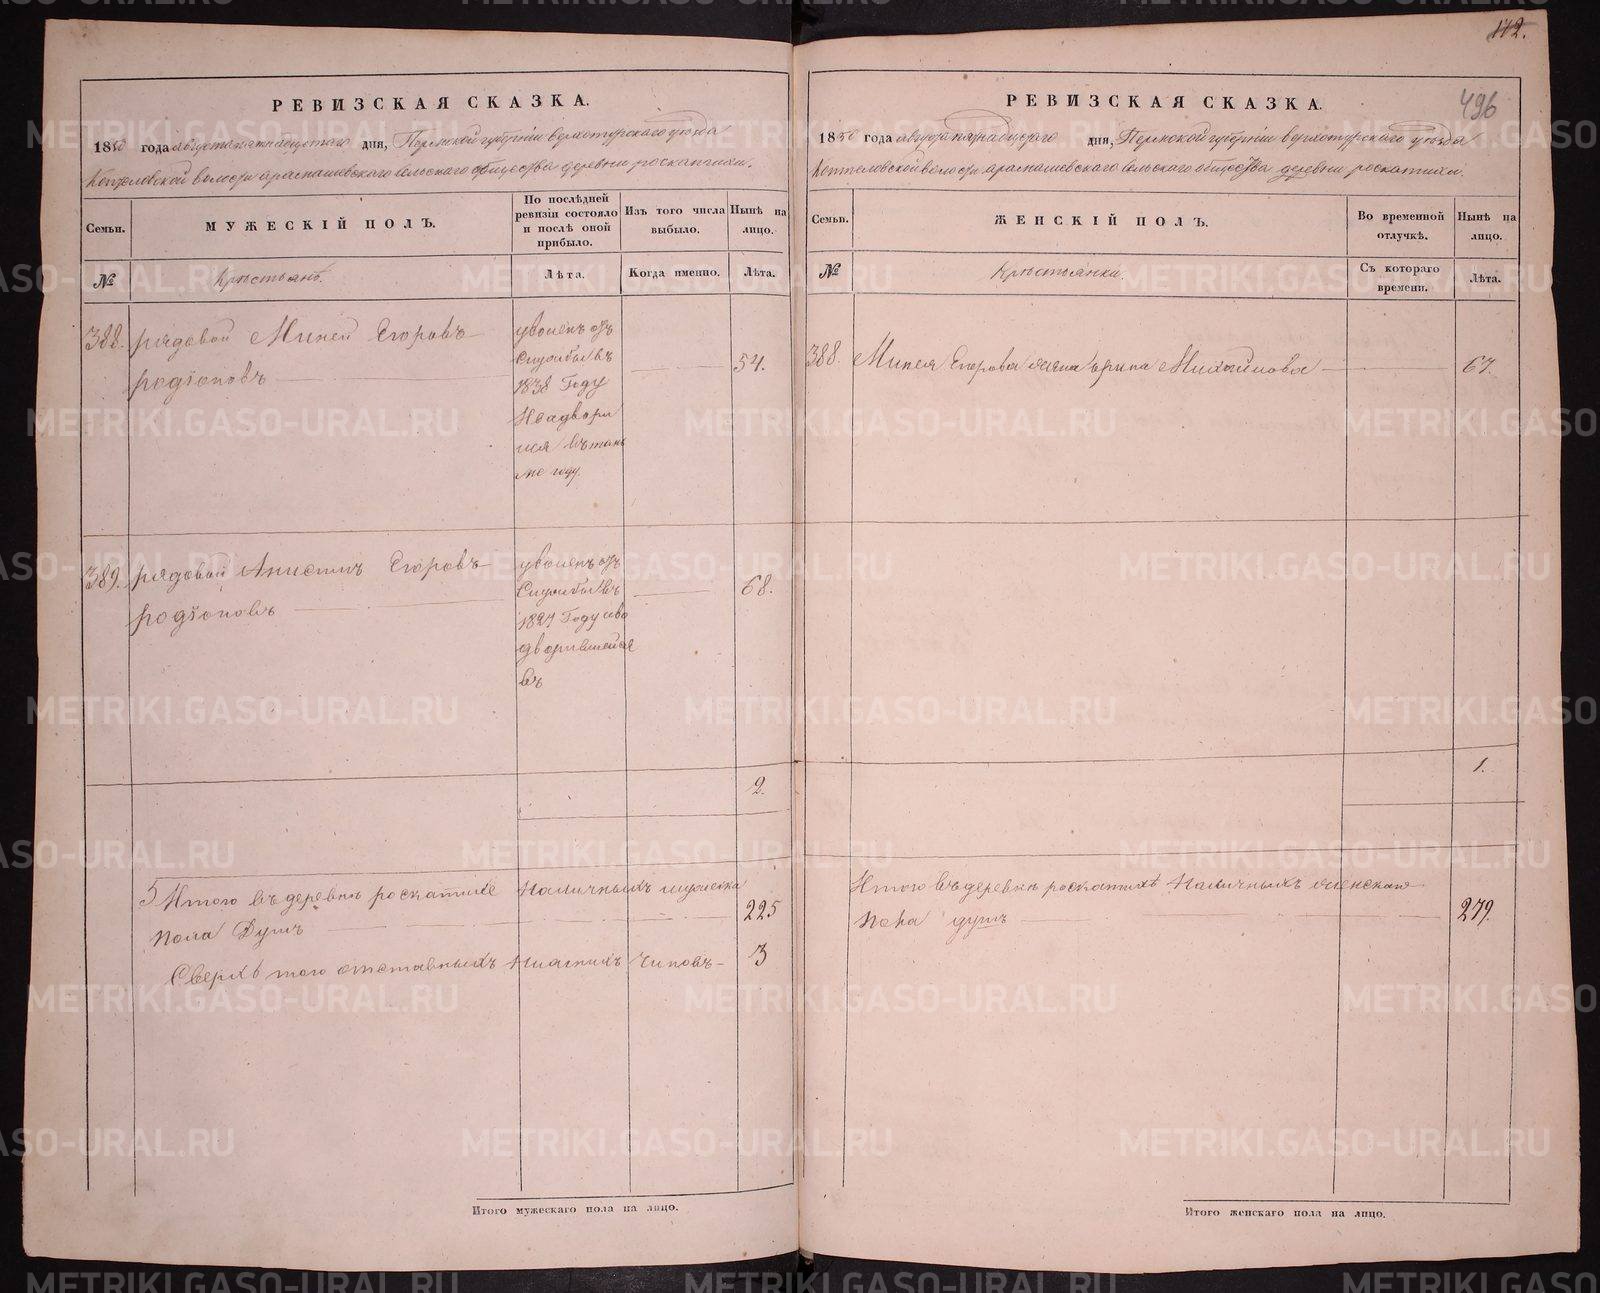 РЕВИЗСКАЯ СКАЗКА.
1850 года августа пятнадцатаго дня, Пермской губернiи верхотурскаго уѣзда
Коптеловской волости арамашевскаго сельскаго общества деревни роскатихи.
Семьи.
МУЖЕСКІЙ ПОЛЪ.
По послѣдней ревизіи состояло и послѣ оной прибыло.
Изъ того числа выбыло.
Нынѣ на лицо.
№
Крѣстьянъ.
Лѣта.
Когда именно.
Лѣта.
388. рядовой Миней Егоровъ
родiоновъ
уволенъ отъ
Службы въ
1838 Году
54.
же году.
389. рядовой Анисимъ Егоровъ
родiоновъ
уволенъ отъ
Службы въ
68.
дворившейся
въ
2.
Итого въ деревнѣ роскатихе наличныхъ мужеска
пола Душъ 225
Сверхъ того отставныхъ нижнихъ Чиновъ 3
Итого мужескаго пола на лицо.
112.
496
РЕВИЗСКАЯ СКАЗКА.
1850 года августа пятнадцатаго дня, Пермской губернiи верхотурскаго уѣзда
Коптеловской волости арамашевскаго сельскаго общества деревни роскатихи.
Семьи.
ЖЕНСКІЙ ПОЛЪ.
Во временной отлучкѣ.
Нынѣ на лицо.
№
Крѣстьянки.
Съ котораго времени.
Лѣта.
388. Минея Егорова жена ирина Михайлова 67.
1.
Итого въ деревнѣ роскатихѣ наличныхъ женскаго
пола душъ 279.
Итого женскаго пола на лицо.
METRIKI.GASO-URAL.RU